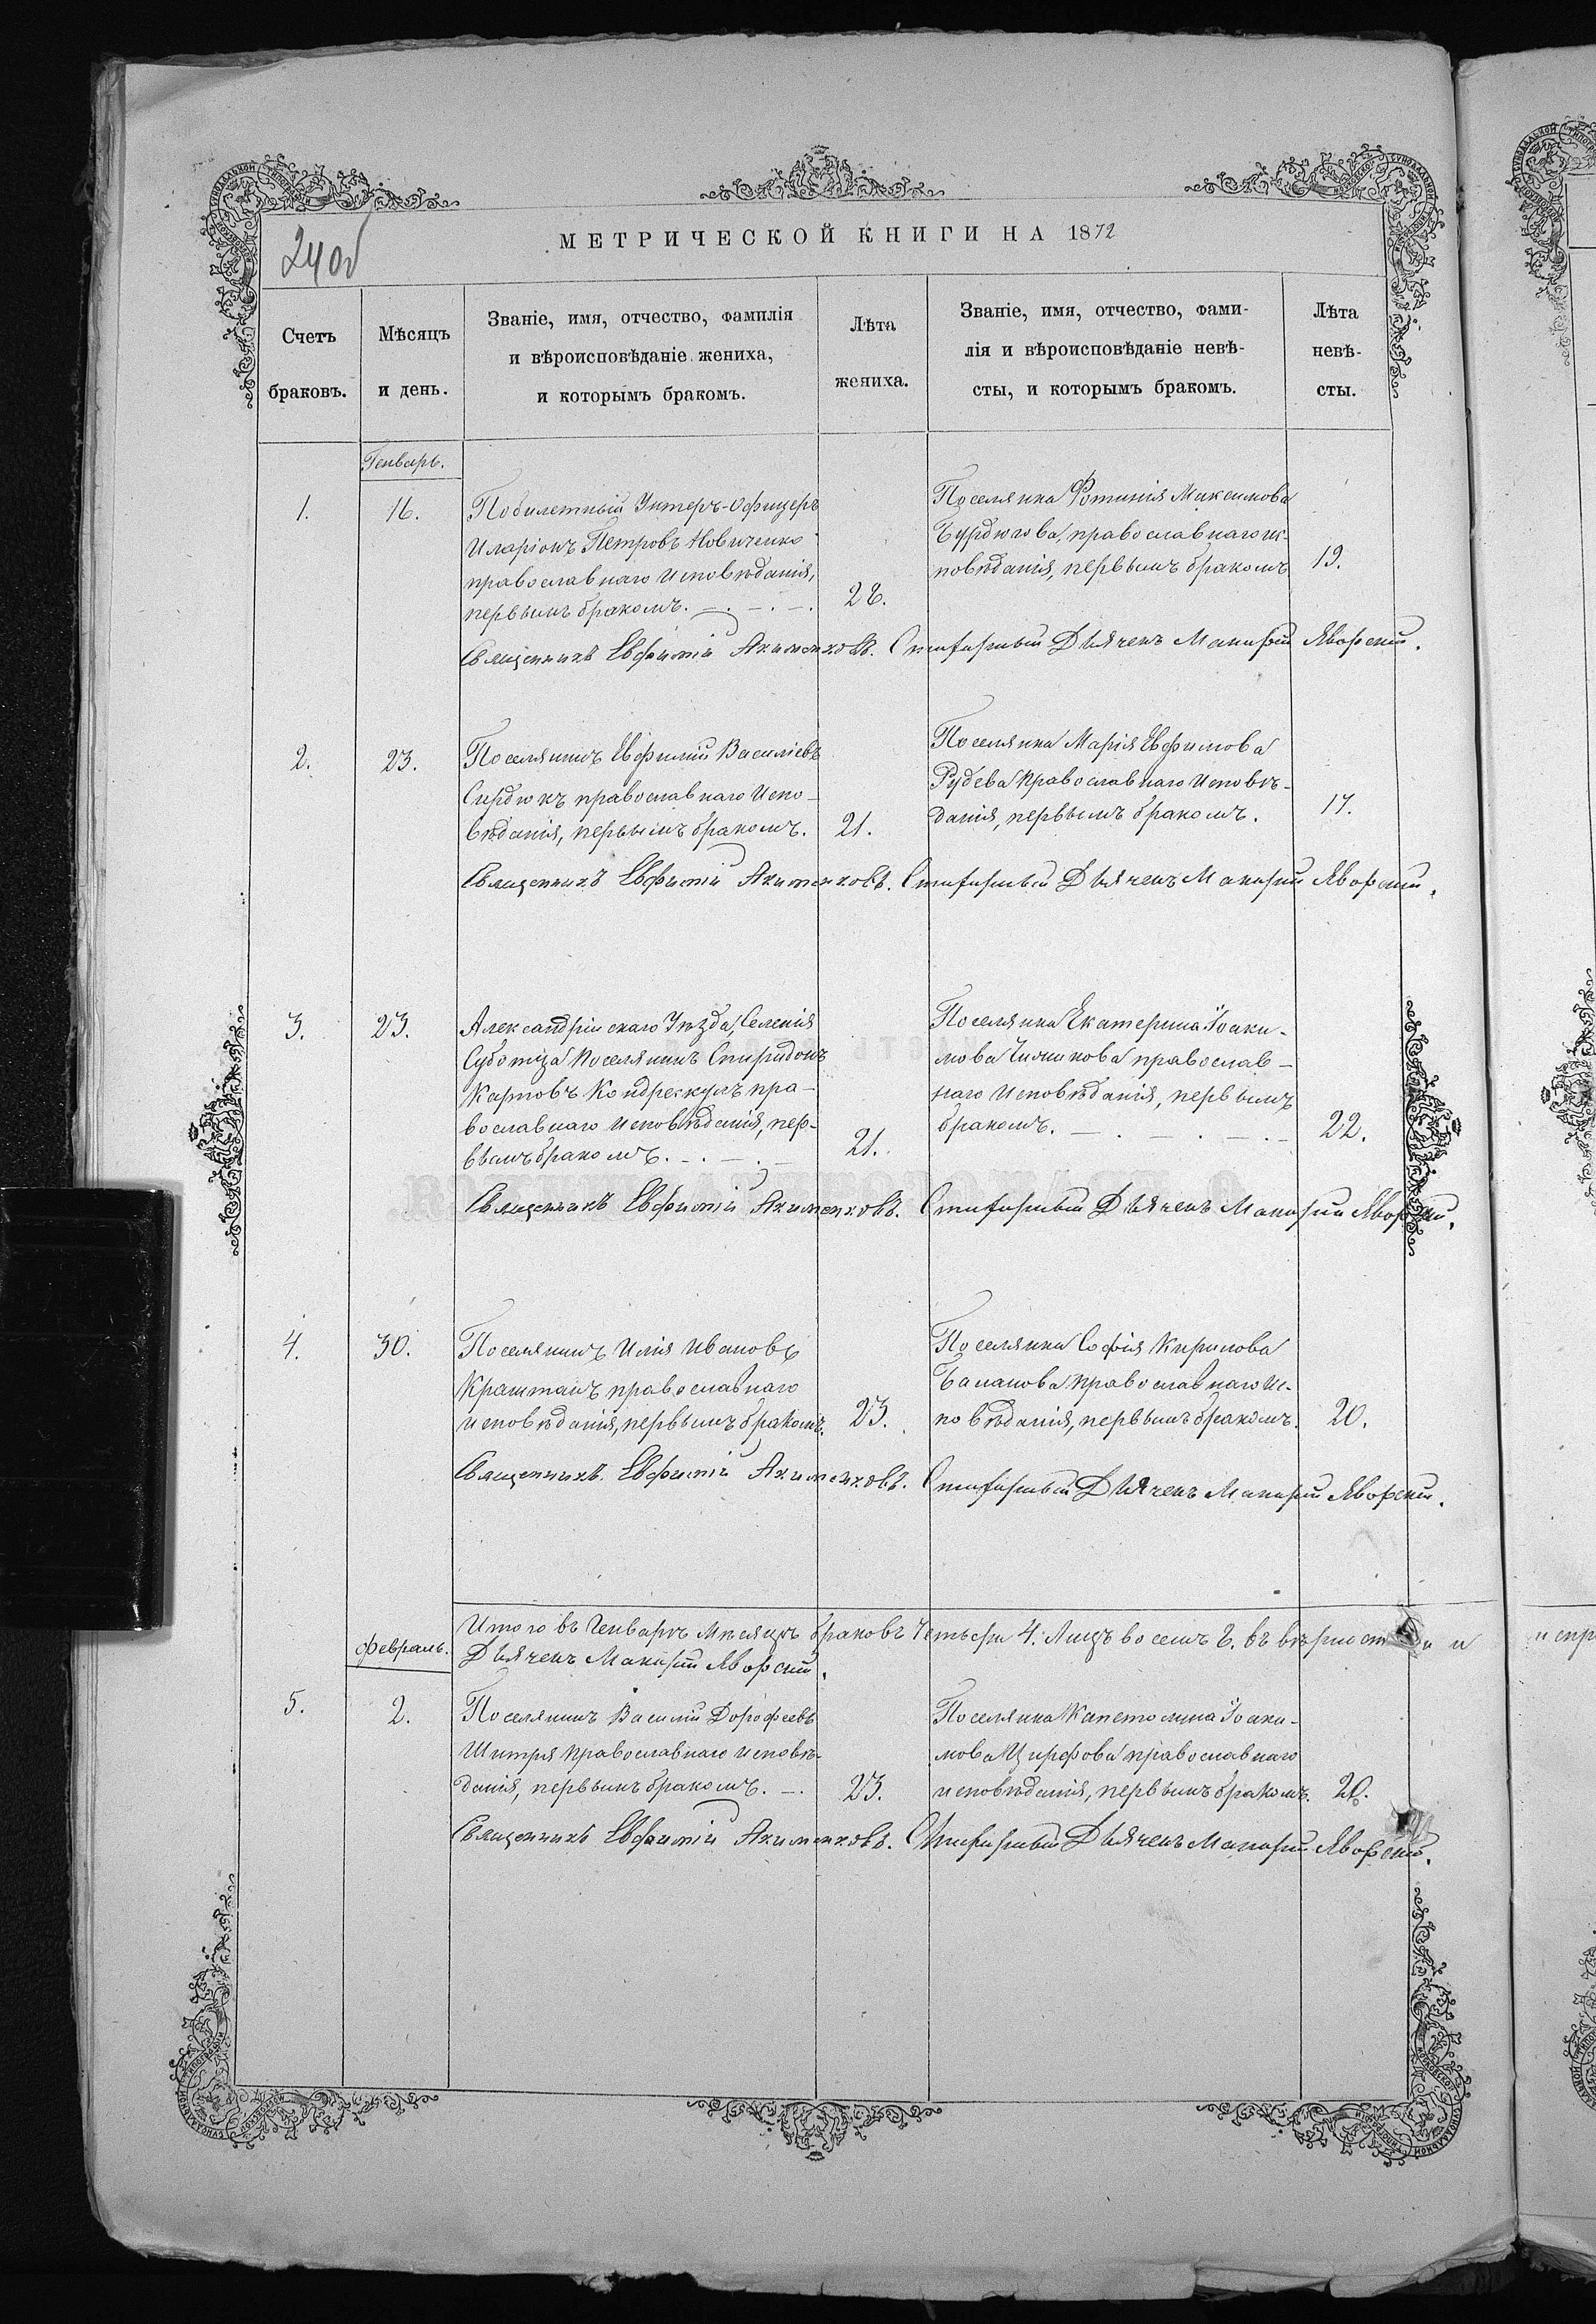 240б
МЕТРИЧЕСКОЙ КНИГИ НА 1872
Счетъ
браковъ.
Мѣсяцъ
и день.
Званіе, имя, отчество, фамилія
и вѣроисповѣданіе жениха,
и которымъ бракомъ.
Лѣта
жениха.
Званіе, имя, отчество, фами-
лія и вѣроисповѣданіе невѣ-
сты, и которымъ бракомъ.
Лѣта
невѣ-
сты.
Генварь.
1.
16.
Побилетный Унтеръ-Офицеръ
Иларіонъ Петровъ Новиченко
православнаго Исповѣданія,
первымъ бракомъ.
28.
Поселянка Фотинія Максимова
Бурдюгова, православнаго ис-
повѣданія, первымъ бракомъ
19.
Священникъ Евфимій Акименковъ. Стихарный Дьячекъ Макарій Яворскій.
2.
23.
Поселянинъ Евфимій Василіевъ
Сирдюкъ православнаго Испо-
вѣданія, первымъ бракомъ.
21.
Поселянка Марія Евфимова
Рудева православнаго Исповѣ-
данія, первымъ бракомъ.
17.
Священникъ Евфимій Акименковъ. Стихарный Дьячекъ Макарій Яворскій.
3.
23.
Александрійскаго Уѣзда, Селенія
Суботца Поселянинъ Спиридонъ
Карповъ Кондрескулъ пра-
вославнаго Исповѣданія, пер-
вымъ бракомъ.
21.
Поселянка Екатерина Іоаки-
мова православ-
наго Исповѣданія, первымъ
бракомъ.
22.
Священникъ Евфимій Акименковъ. Стихарный Дьячекъ Макарій Яворскій.
4.
30.
Поселянинъ Илія Ивановъ
Краштанъ православнаго
исповѣданія, первымъ бракомъ.
23.
Поселянка Софія Кирилова
Баланова православнаго ис-
повѣданія, первымъ бракомъ.
20.
Священникъ Евфимій Акименковъ. Стихарный Дьячекъ Макарій Яворскій.
Итого въ Генварѣ Мѣсяцѣ браковъ Четыри 4. Лицъ восемъ 8. въ вѣрности и
Дьячекъ Макарій Яворскій.
Февраль.
5.
2.
Поселянинъ Василій Дорофеевъ
Шитря православнаго исповѣ-
данія, первымъ бракомъ.
23.
Поселянка Капетолина Іоаки-
мова Цирфова православнаго
исповѣданія, первымъ бракомъ.
20.
Священникъ Евфимій Акименковъ. Стихарный Дьячекъ Макарій Яворскій.